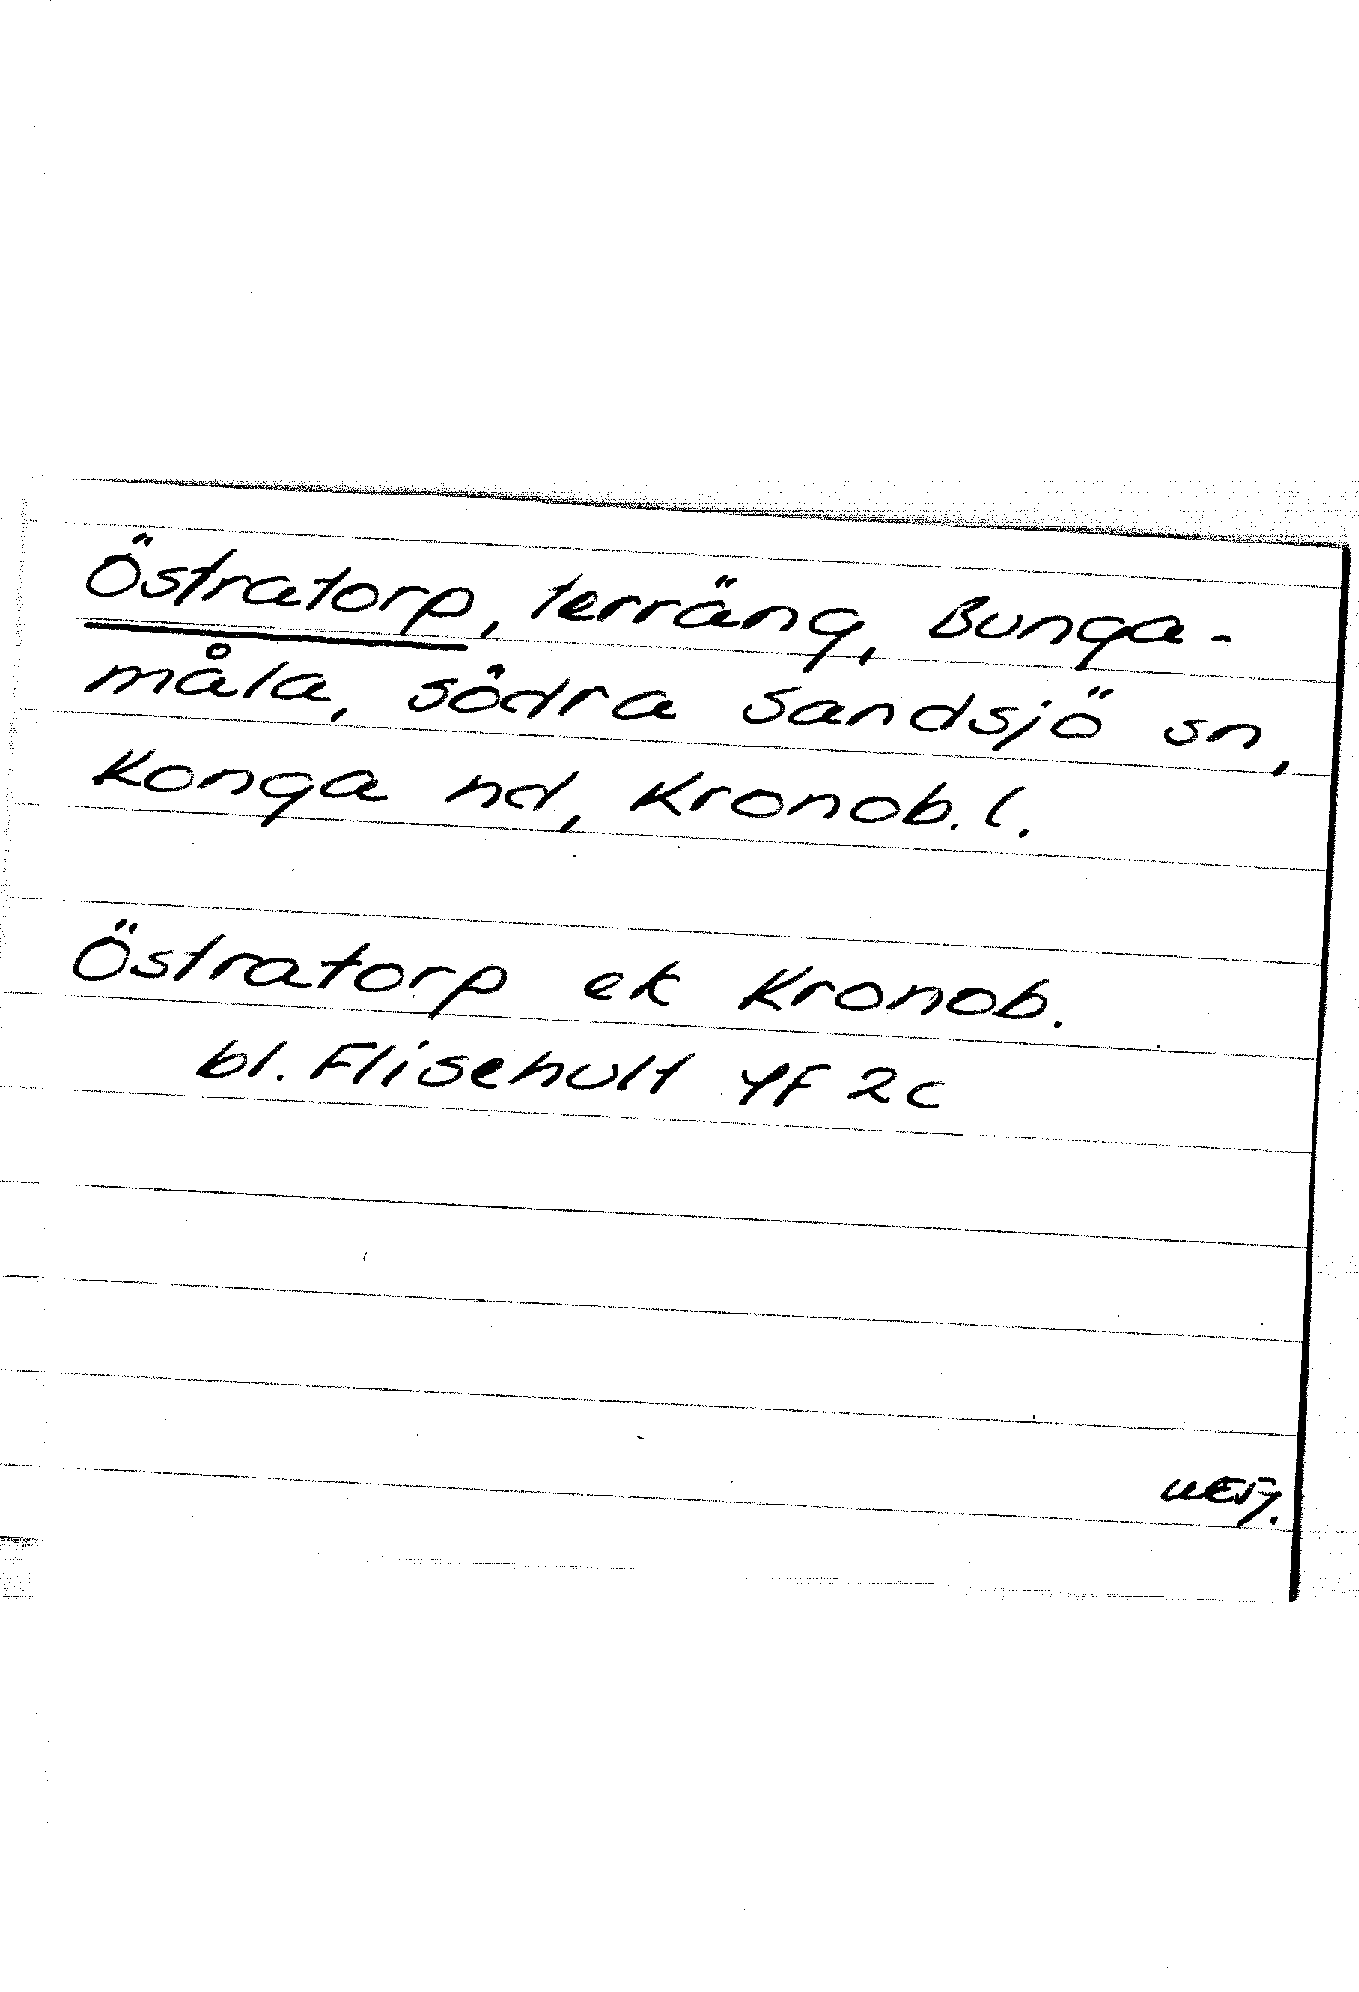 Östratorp, terräng, Bunga-
måla, södra Sandsjö sn,
Konga hd, Kronob. l.
Östratorp ek Kronob.
bl. Flisehult 4F 2c